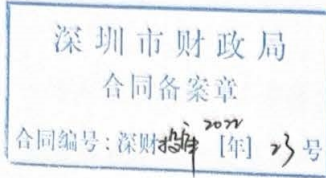 深圳市财政局
合同备案章
合同编号:深财投审2022[年]23号